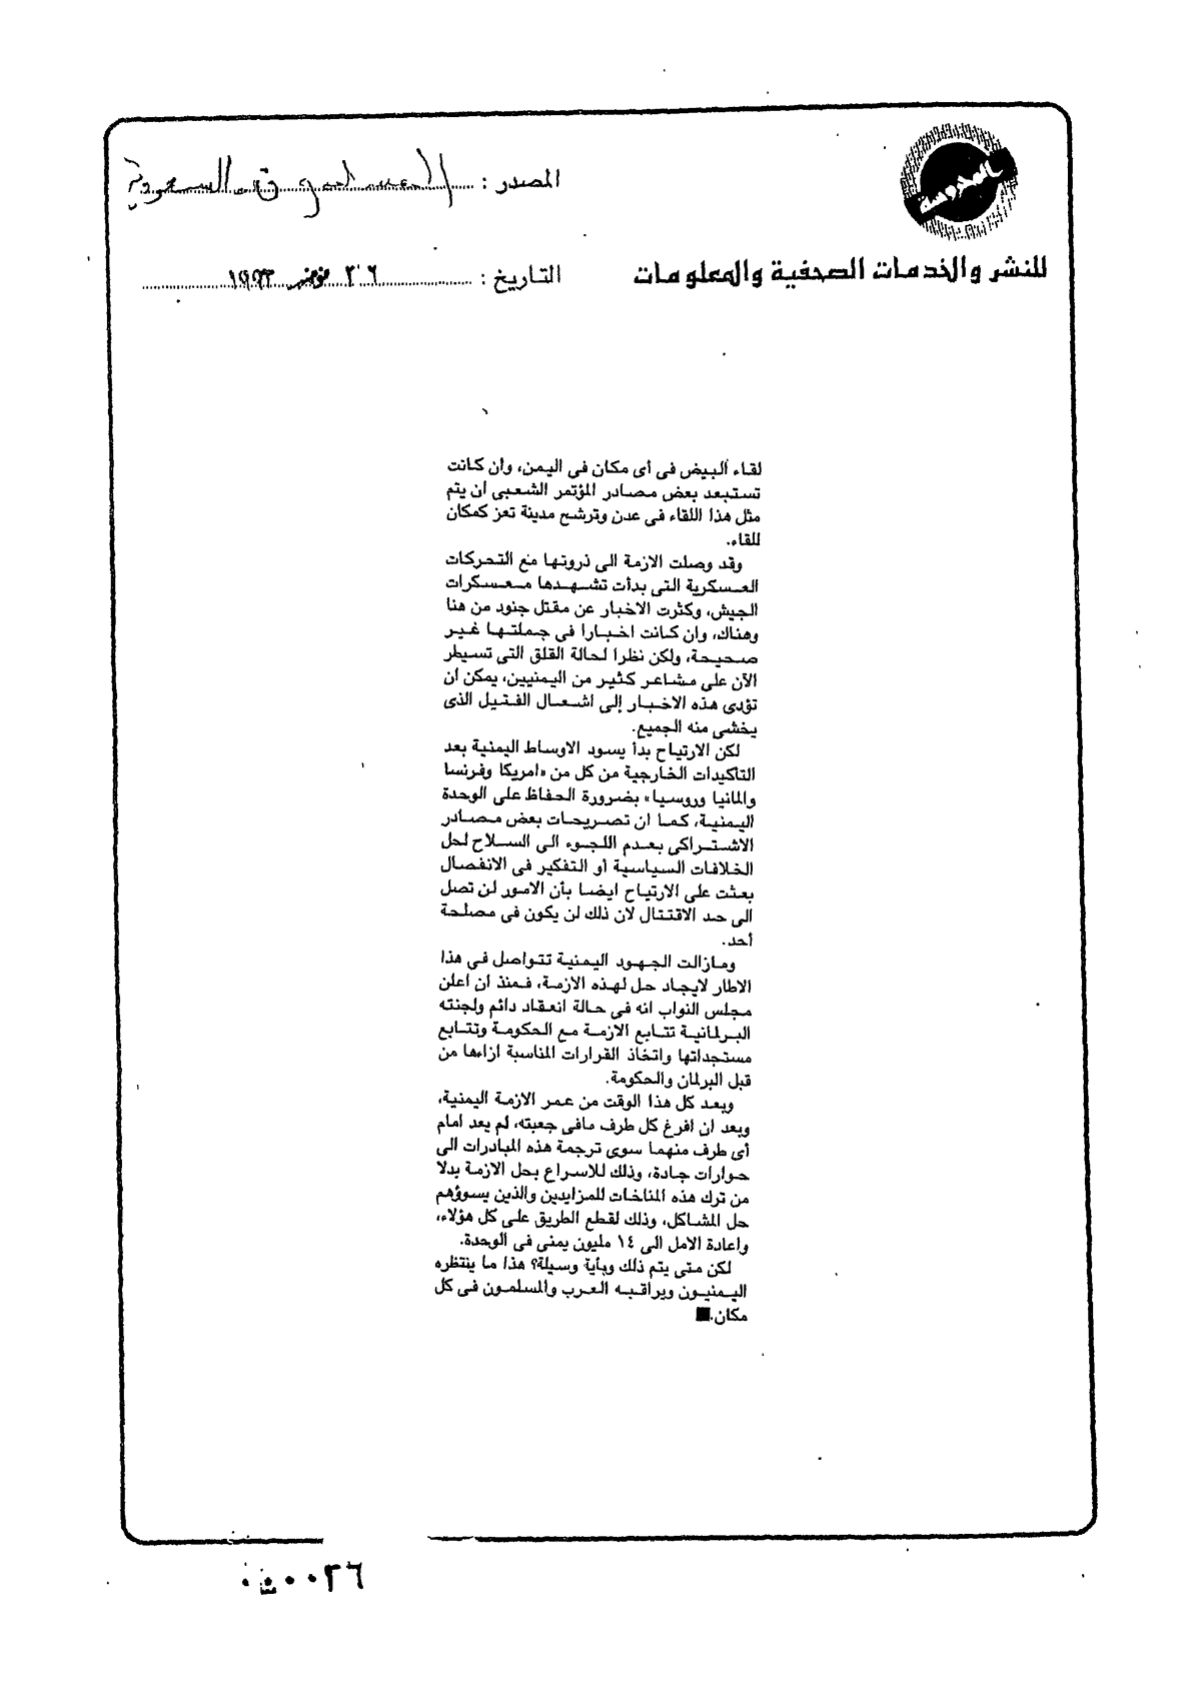 المحروسة
للنشر والخدمات الصحفية والمعلومات
المصدر : السعودية
التاريخ : ٢٦ نوفمبر ١٩٩٣
لقاء البيض فى أى مكان فى اليمن، وان كانت
تستبعد بعض مصادر المؤتمر الشعبى ان يتم
مثل هذا اللقاء فى عدن وترشح مدينة تعز كمكان
للقاء.
وقد وصلت الازمة الى ذروتها مع التحركات
العسكرية التى بدأت تشهدها معسكرات
الجيش، وكثرت الاخبار عن مقتل جنود من هنا
وهناك، وان كانت اخبارا فى جملتها غير
صحيحة، ولكن نظرا لحالة القلق التى تسيطر
الآن على مشاعر كثير من اليمنيين، يمكن ان
تؤدى هذه الاخبار إلى اشعال الفتيل الذى
يخشى منه الجميع.
لكن الارتياح بدأ يسود الاوساط اليمنية بعد
التاكيدات الخارجية من كل من «امريكا وفرنسا
والمانيا وروسيا» بضرورة الحفاظ على الوحدة
اليمنية، كما ان تصريحات بعض مصادر
الاشتراكى بعدم اللجوء الى السلاح لحل
الخلافات السياسية أو التفكير فى الانفصال
بعثت على الارتياح ايضا بأن الامور لن تصل
الى حد الاقتتال لان ذلك لن يكون فى مصلحة
أحد.
ومازالت الجهود اليمنية تتواصل فى هذا
الاطار لايجاد حل لهذه الازمة، فمنذ ان اعلن
مجلس النواب انه فى حالة انعقاد دائم ولجنته
البرلمانية تتابع الازمة مع الحكومة وتتابع
مستجداتها واتخاذ القرارات المناسبة ازاءها من
قبل البرلمان والحكومة.
وبعد كل هذا الوقت من عمر الازمة اليمنية،
وبعد ان افرغ كل طرف مافى جعبته، لم يعد امام
أى طرف منهما سوى ترجمة هذه المبادرات الى
حوارات جادة، وذلك للاسراع بحل الازمة بدلا
من ترك هذه المناخات للمزايدين والذين يسوؤهم
حل المشاكل، وذلك لقطع الطريق على كل هؤلاء،
واعادة الامل الى ١٤ مليون يمنى فى الوحدة.
لكن متى يتم ذلك وبأية وسيلة؟ هذا ما ينتظره
اليمنيون ويراقبه العرب والمسلمون فى كل
مكان.